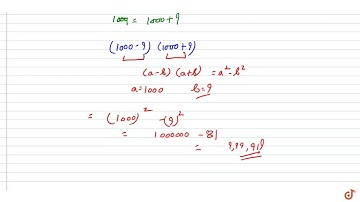 1009 = 1000+9
(1000-9) (1000+9)
(a-b) (a+b) = a²-b²
a=1000 b=9
= (1000)² -(9)²
= 1000000 - 81
= 9,99,919